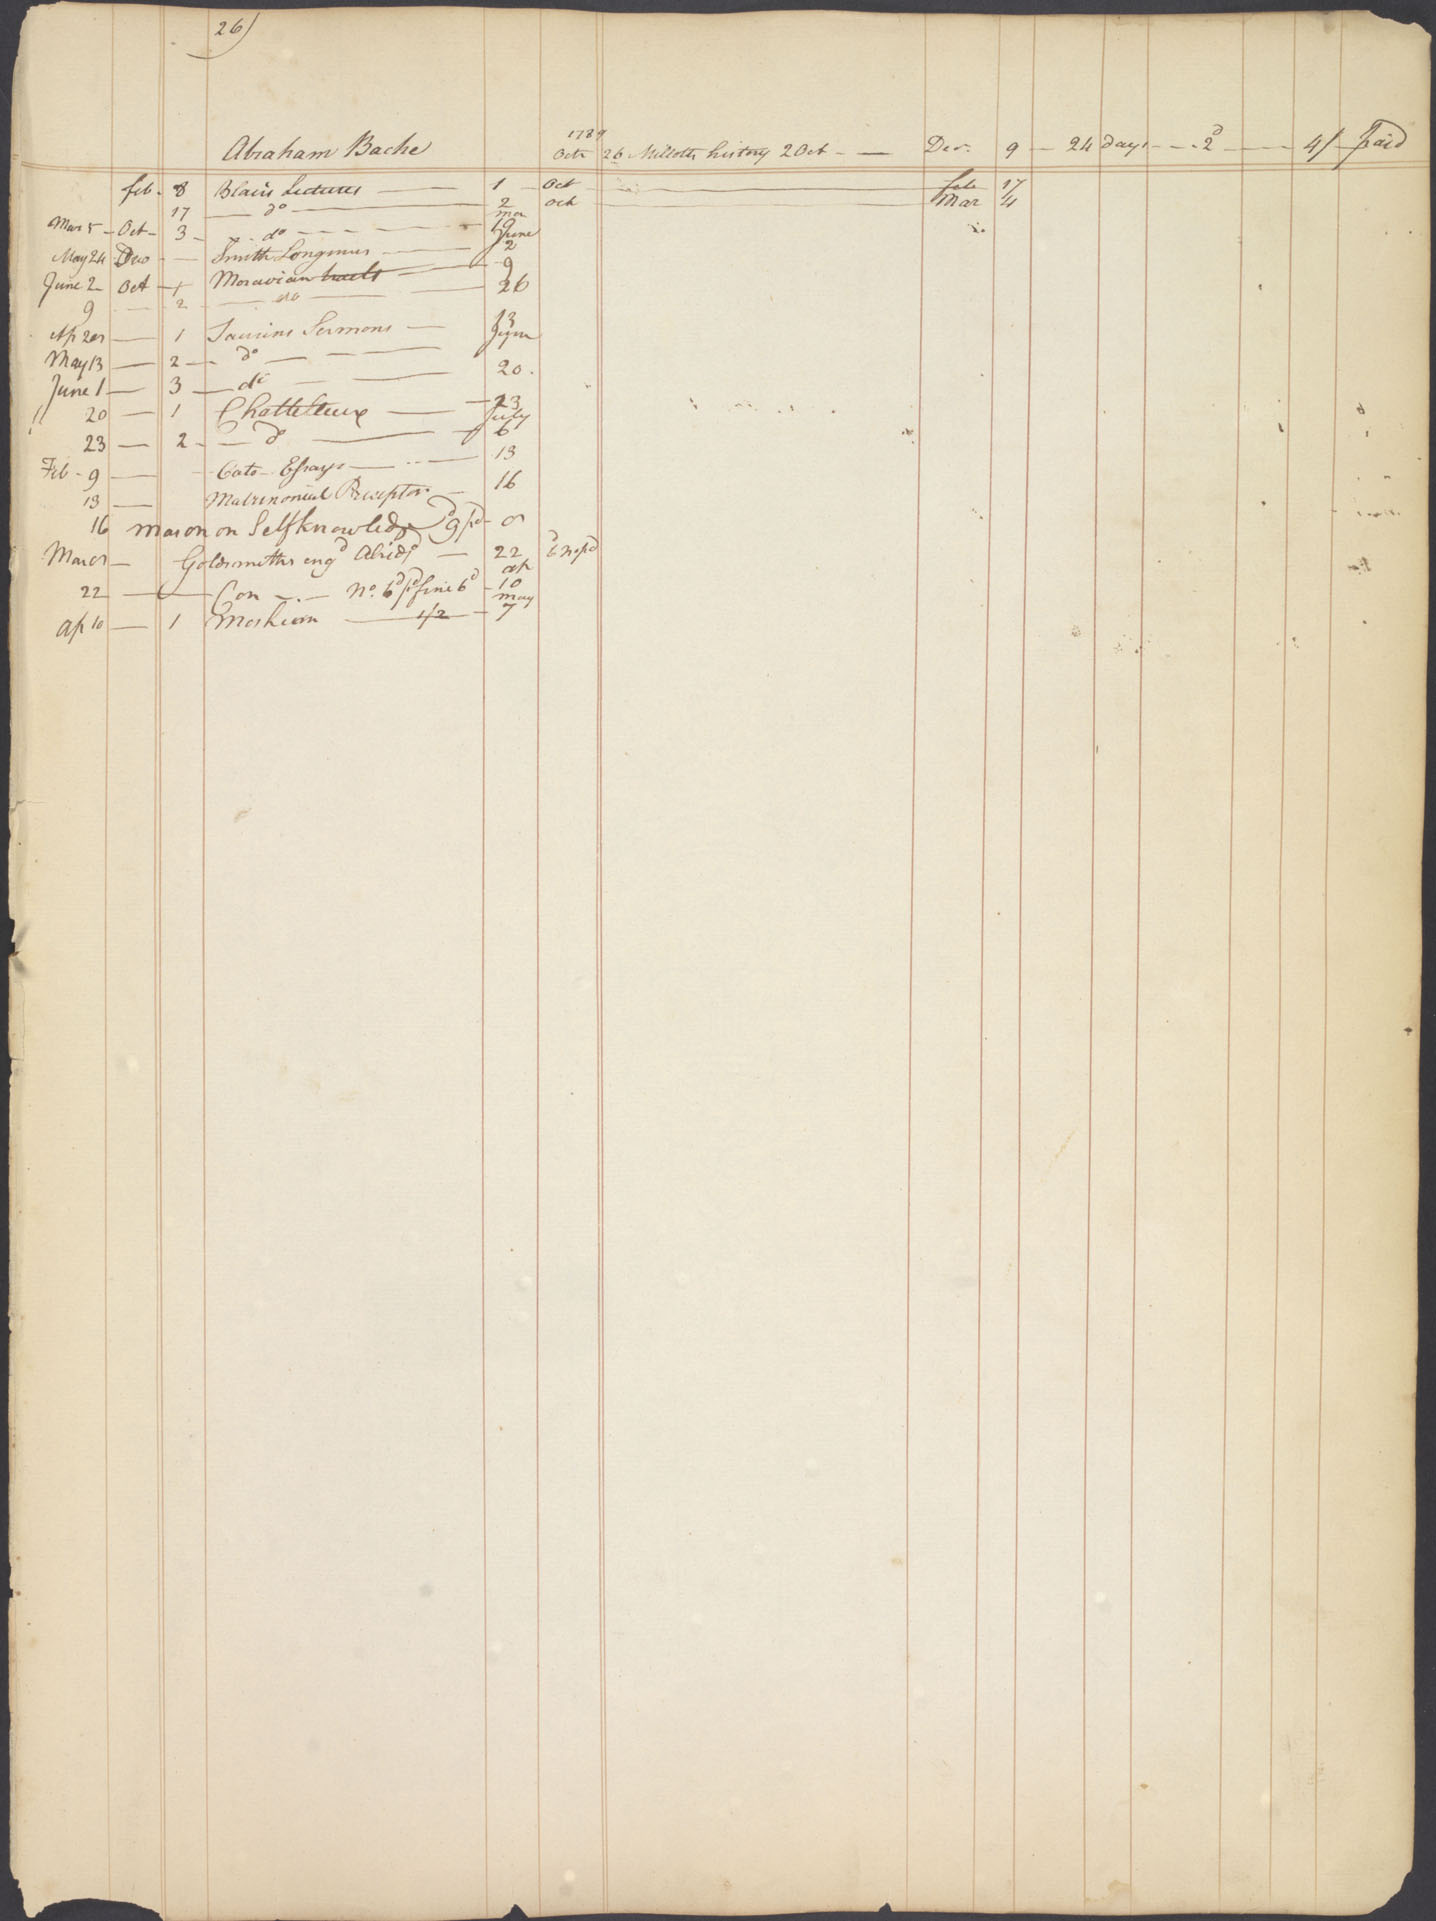 26)
1789
Abraham Bache Octr 26 Millotts history 2 Oct — — Decr. 9 — 24 days - - - 2d — — 4/ — Paid
feb. 8 Blairs Lectures — — 1 — Oct — — feb 17
17 — do — 2 Oct — Mar 4
Mar 5 — Oct — 3 — do — — — mar 19
May 24 Duo — Smith Longinus — — June 2
June 2 Oct — 1 Moravian — 9
9 — 2 — do — 26
Ap 20 — 1 Saurins Sermons — 13
May 13 — 2 — do — —
June 1 — 3 — do — — 20.
20 — 1 Chattelleux — 23
23 — 2 — do — July 6
Feb - 9 — Cato Essays — 13
13 — Matrimonial Preceptor — 16
16 mason on Selfknowledge 9d pd
Mar — Goldsmiths engd Abridgd — 22
22 — Con — . — No. 6d pd fine 6d — ap 10
Ap 10 — 1 Moshiem — 1/2 — may 7